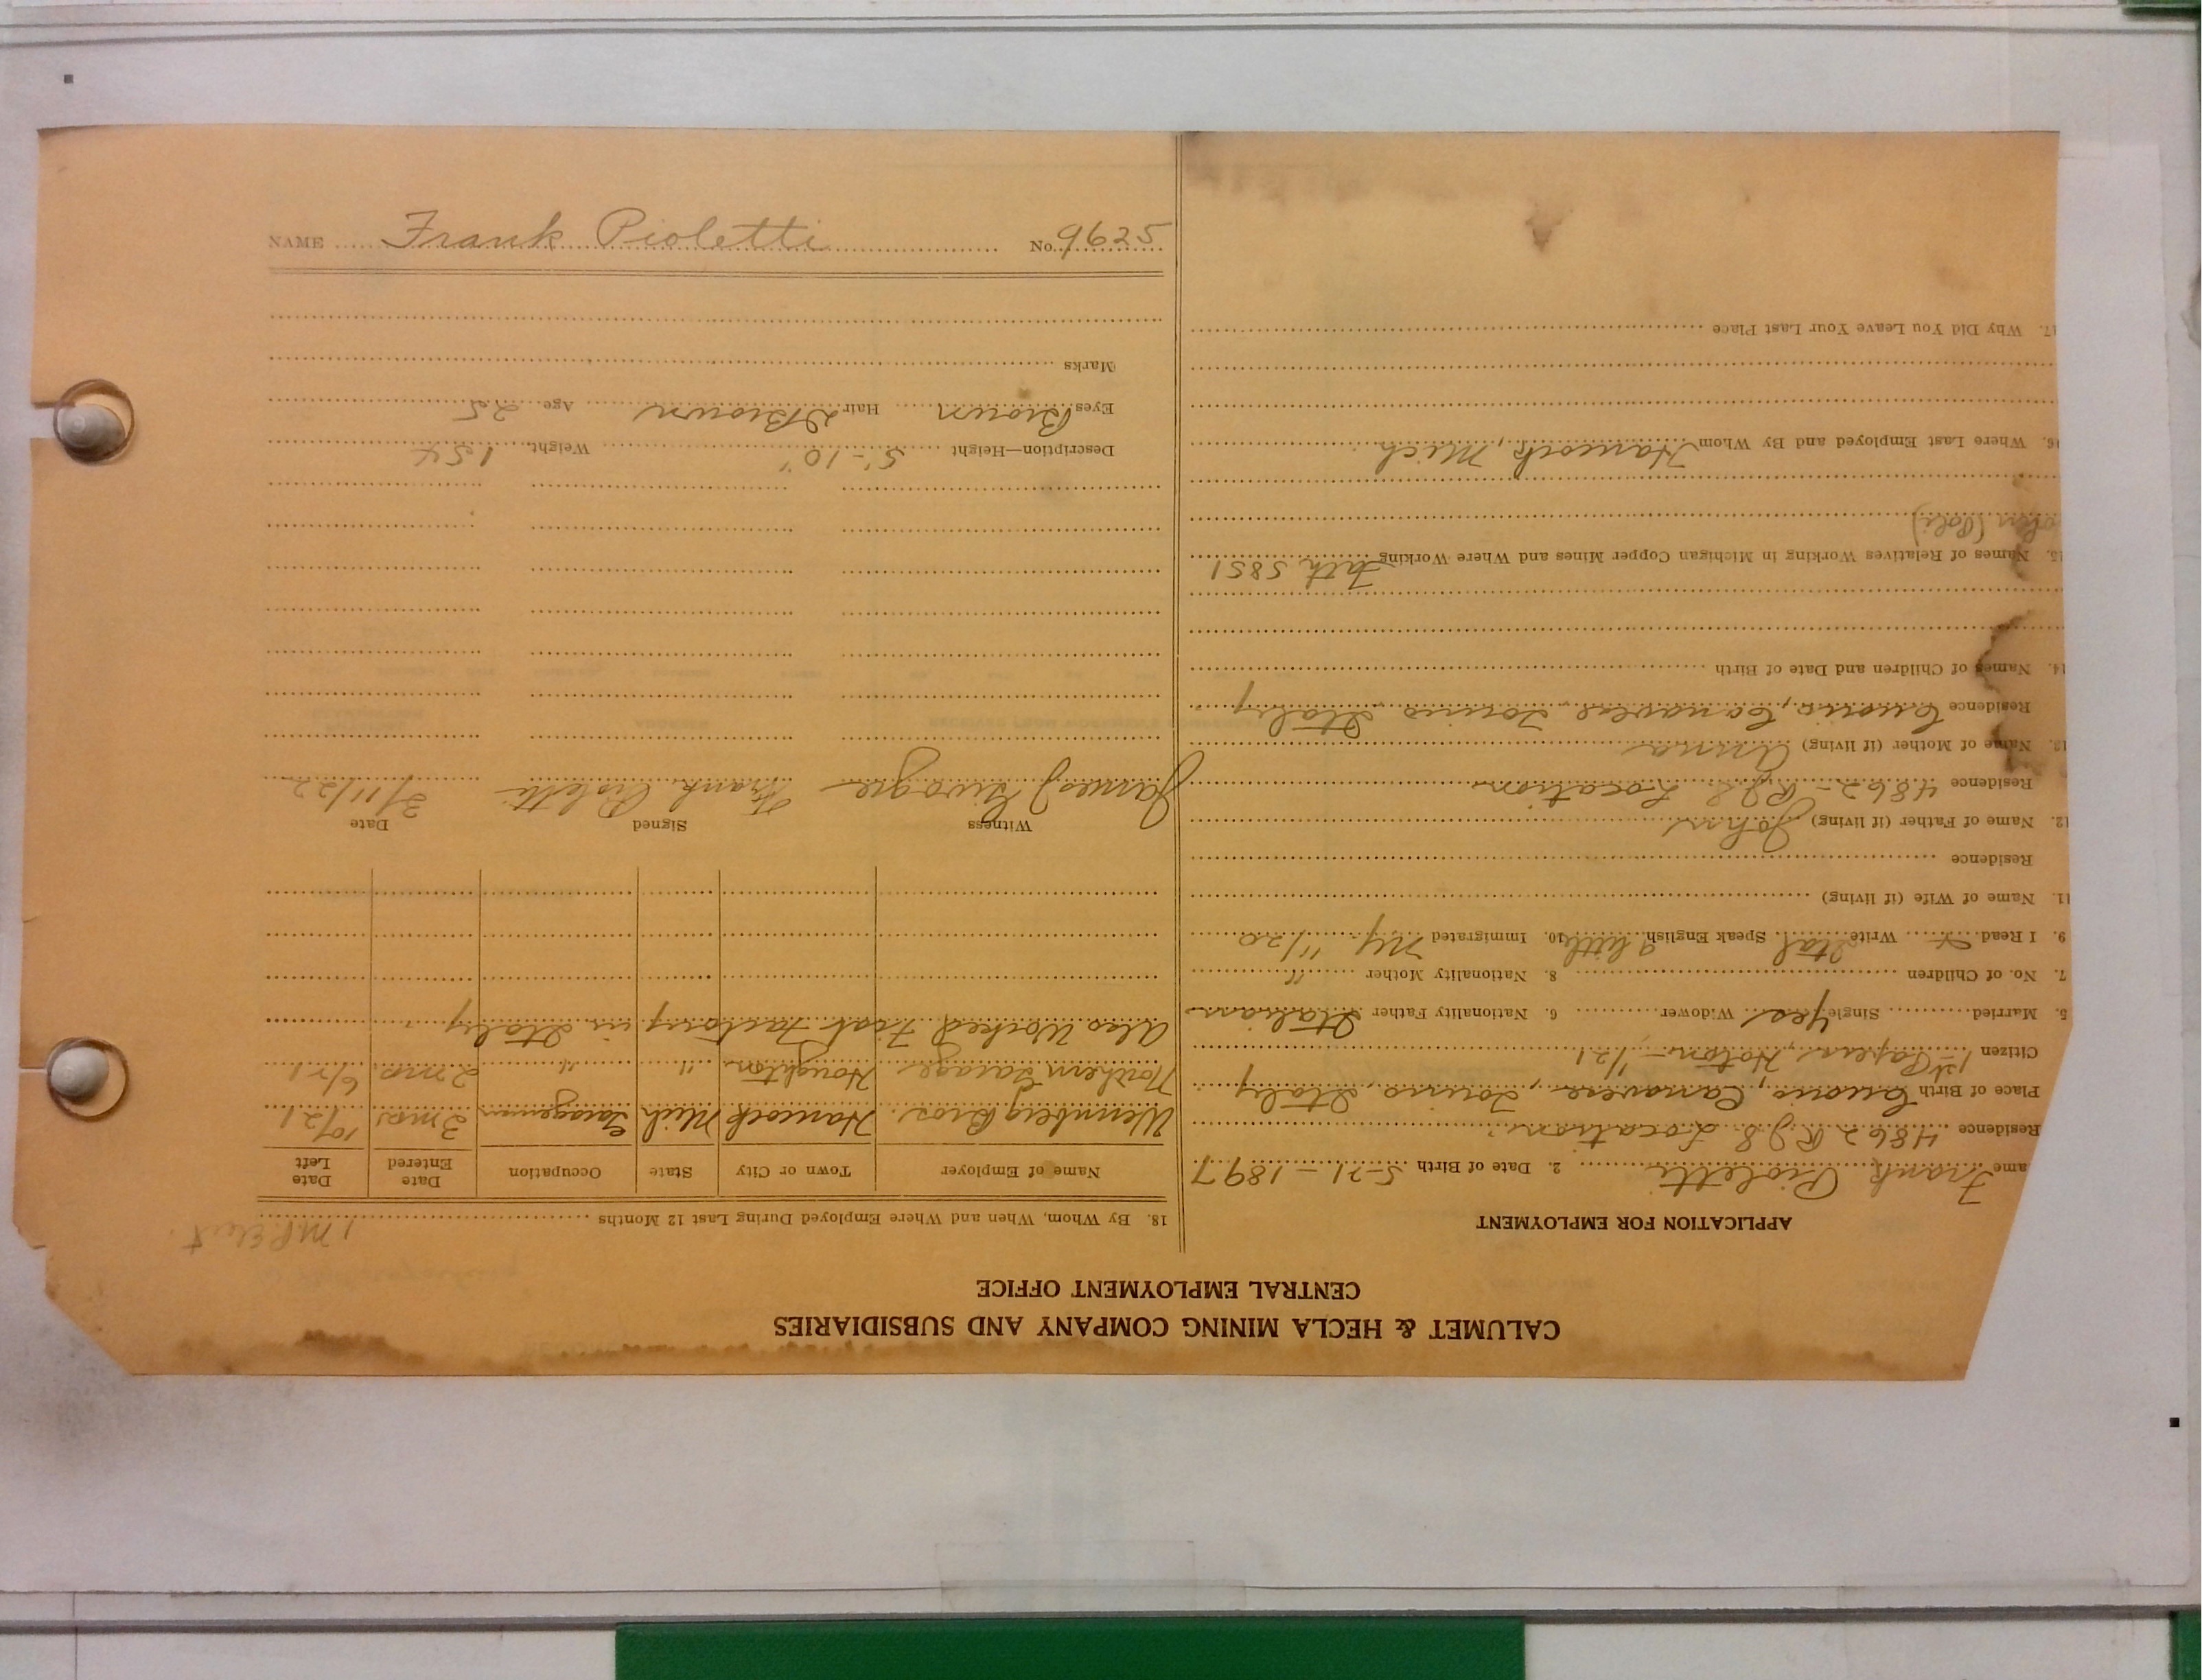 CALUMET & HECLA MINING COMPANY AND SUBSIDIARIES
CENTRAL EMPLOYMENT OFFICE
APPLICATION FOR EMPLOYMENT
ame Frank Pioletti 2. Date of Birth 5-21-1897
Residence 4862 R.J.S. Location
Place of Birth Cuorio, Canavese, Torino, Italy
Citizen 1st Papers Hoton - 1/21
5. Married Single Yes Widower 6. Nationality Father Italian
7. No. of Children 8. Nationality Mother "
9. I Read Write Ital Speak English a little 10. Immigrated NY 11/20
11. Name of Wife (if living)
Residence
12. Name of Father (if living) John
Residence 4862 - R.J.S. Location
13. Name of Mother (if living) Anna
Residence Cuorio, Canavese, Torino, Italy
14. Names of Children and Date of Birth
15. Names of Relatives Working in Michigan Copper Mines and Where Working Fath 5851
16. Where Last Employed and By Whom Hancock, Mich
17. Why Did You Leave Your Last Place
18. By Whom, When and Where Employed During Last 12 Months
Name of Employer Town or City State Occupation Date Entered Date Left
Wennberg Bros. Hancock Mich Garageman 3 mos 10/21
Northern Garage Houghton " " 2 mos. 6/21
Also Worked Fiat Factory in Italy
Witness Signed Date
James J Frank Pioletti 3/11/22
Description—Height 5'-10" Weight 154
Eyes Brown Hair D Brown Age 25
Marks
NAME Frank Pioletti No. 9625